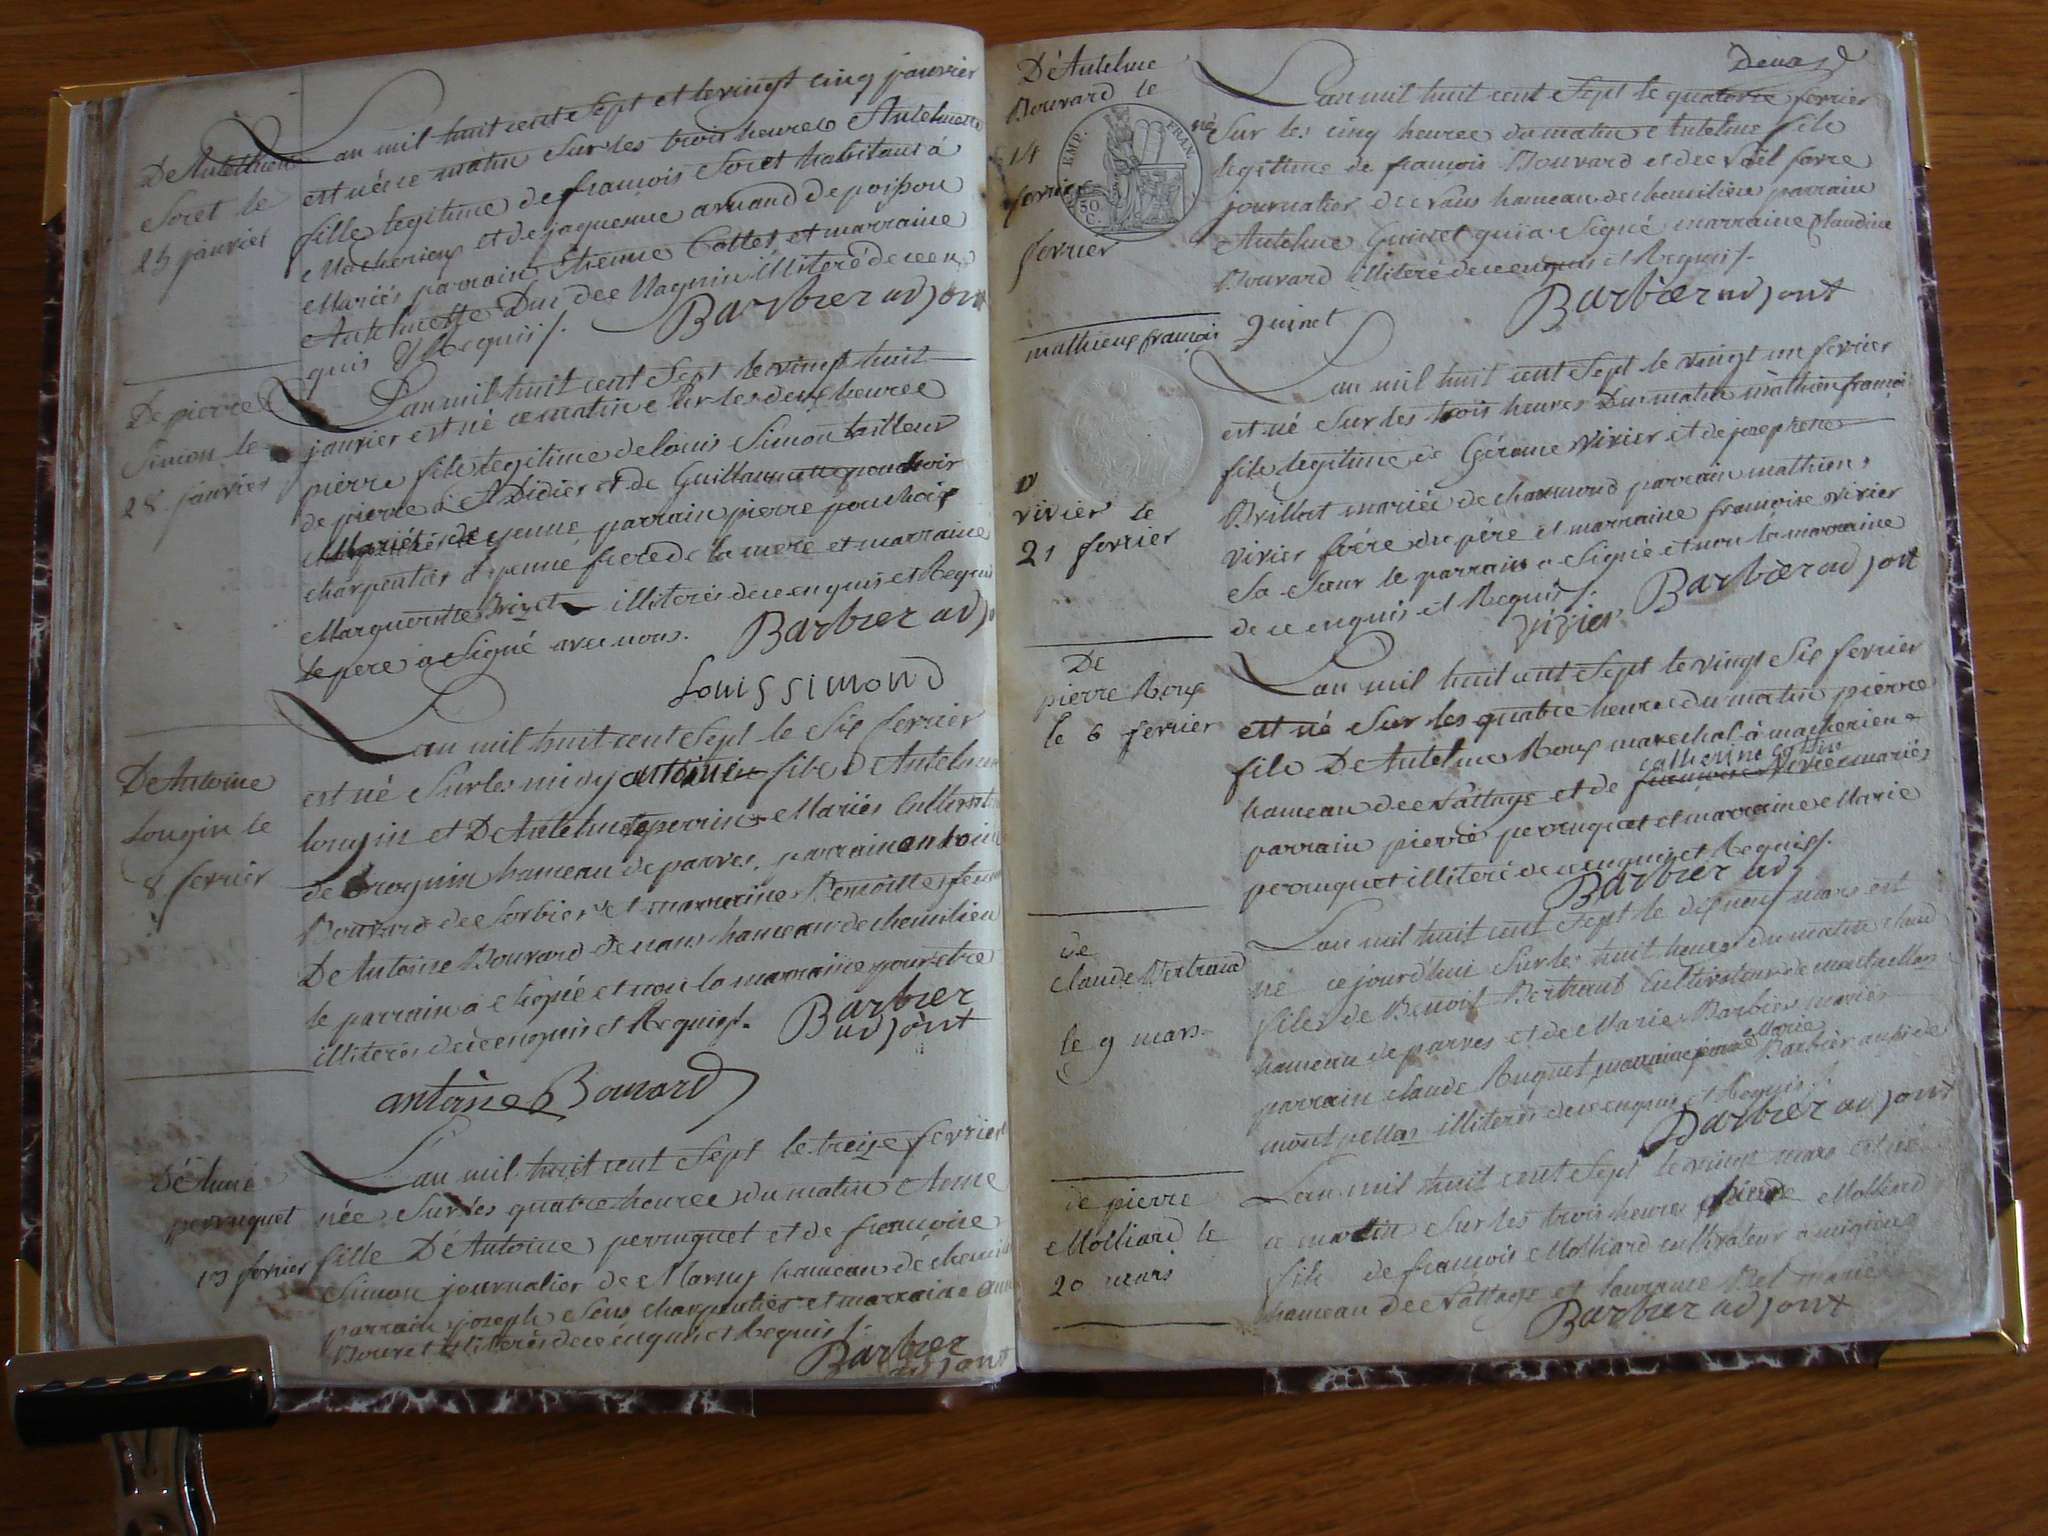 De Anthelmette
Soret le
25 janvier
L'an mil huit cent Sept et le vingt cinq janvier
est née ce matin Sur les trois heures Anthelmette
fille legitime de françois Soret habitant à
et de jaquemine arnaud de poisson
Mariés parrain Etienne Collet et marraine
Anthelmette Duc de Nagnin illiteré de ce en
quis & Requis /.
Barbier adjont
De pierre
Simon le
28 janvier
L'an mil huit cent Sept le vingt huit
janvier est né ce matin Sur les deux heures
pierre fils legitime de louis Simon tailleur
de pierre à St Didier et de Guillaumette pouchoir
Mariés de yenne parrain pierre pouchoir
charpentier d'yenne frere de la mere et marraine
Marguerite illiterés de ce enquis et Requis
le pere a Signé avec nous.
Barbier adj
Louis Simond
De Antoine
Longin le
8 fevrier
L'an mil huit cent Sept le Six fevrier
est né Sur les midy antoine fils D'Antelme
longin et D'Antelmette perrin Mariés Cultivat
de hameau de parves, parrain antoine
Bouvard de Sorbier et marraine Benoitte femme
De Antoine Bouvard de nans hameau de chemilieu
le parrain a Signé et non la marraine pour etre
illiterés de ce enquis et Requis /.
Barbier
adjont
antoine Bouvard
D'Anne
perruquet
13 fevrier
L'an mil huit cent Sept le treize fevrier
née Sur les quatre heures du matin Anne
fille D'Antoine perruquet et de françoise
Simon journalier de Marny hameau de chemil
parrain joseph Sens charpentier et marraine anne
Bouvet illiterés de ce enquis et Requis /.
Barbier
adjont
D'Antelme
Bouvard le
14
fevrier
fevrier
EMP. FRAN.
50
C.
L'an mil huit cent Sept le quatorze fevrier
né Sur les cinq heures du matin Antelme fils
legitime de françois Bouvard et de
journalier de vans hameau de chemilieu parrain
Antelme Guinet qui a Signé marraine Claudine
Bouvard illiteré de ce enquis et Requis /.
Barbier adjont
guinet
mathieux françois
vivier le
21 fevrier
L'an mil huit cent Sept le vingt un fevrier
est né Sur les trois heures Du matin mathieu françois
fils legitime de Gérome vivier et de josephete
Brillat mariés de charmond parrain mathieu
vivier frère du père et marraine françoise vivier
Sa Sœur le parrain a Signé et non la marraine
de ce enquis et Requis /.
Barbier adjont
vivier
De
pierre Roux
le 6 fevrier
L'an mil huit cent Sept le vingt Six fevrier
est né Sur les quatre heures du matin pierre
fils D'Antelme Roux marechal à
hameau de et de catherine cottin mariés
parrain pierre perruquet et marraine Marie
perruquet illiteré de ce enquis et Requis /.
Barbier adj
de
claude Bertrand
le 9 mars
L'an mil huit cent Sept le dix neuf mars est
né ce jourd'hui Sur les huit heures du matin claud
fils de Benoit Bertrand Cultivateur de montpellas
hameau de parves et de Marie Barbier mariés
parrain claude Ruquet marraine Marie Barbier aussi de
montpellas illiterés de ce enquis et Requis /.
Barbier adjont
de pierre
Molliard le
20 mars
L'an mil huit cent Sept le vingt mars est né
ce matin Sur les trois heures pierre Molliard
fils de françois Molliard cultivateur a
hameau de et laurance Bel mariés
Barbier adjont